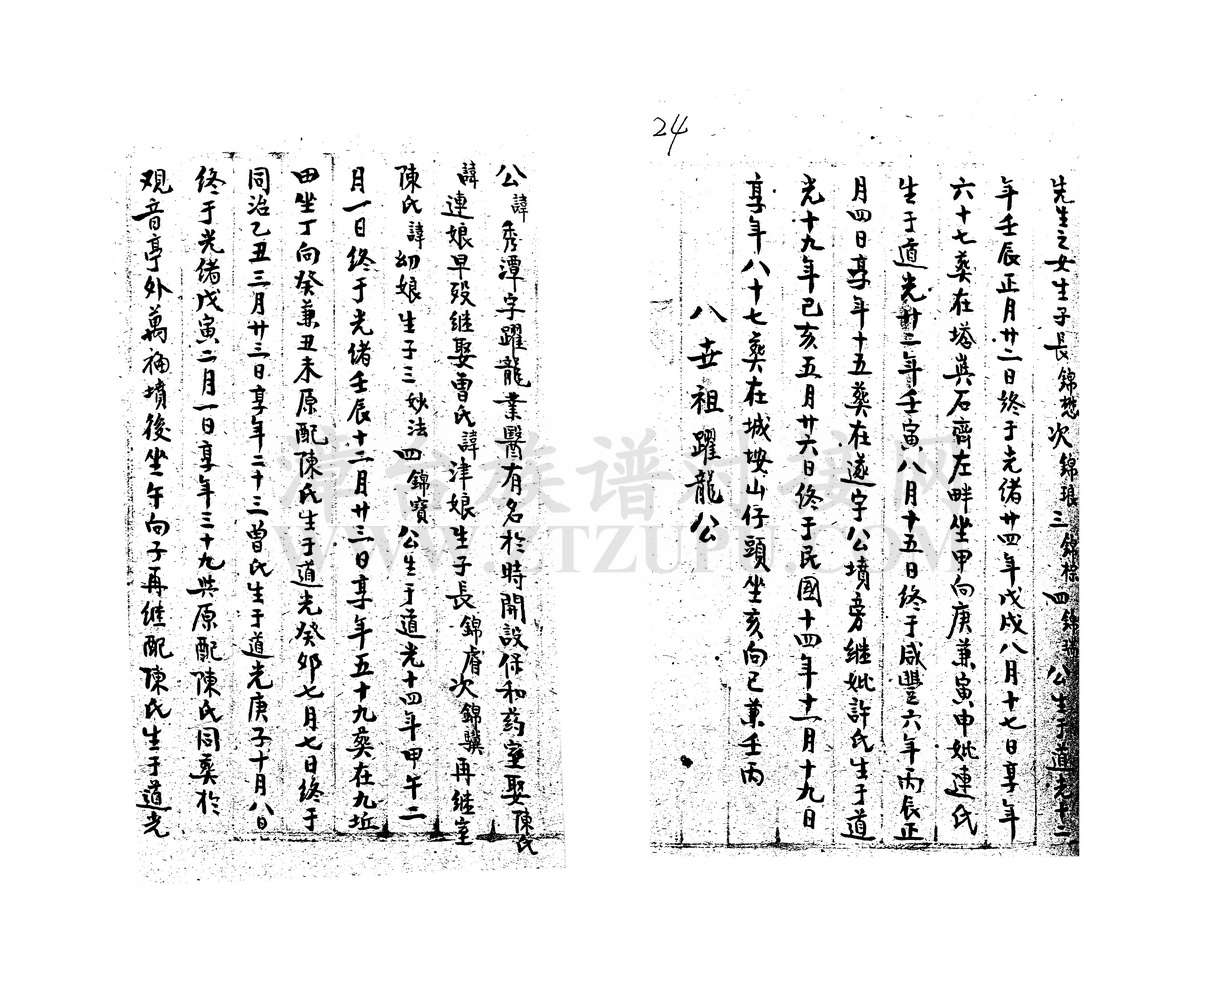 24
先生之女生子長錦懋次錦琅三錦標四錦瑞公生于道光十二
年壬辰正月廿二日終于光緒廿四年戊戌八月十七日享年
六十七葬在塔兵石齊左畔坐甲向庚兼寅申妣連氏
生于道光廿二年壬寅八月十五日終于咸豐六年丙辰正
月四日享年十五葬在遂字公墳旁继妣許氏生于道
光十九年己亥五月廿六日終于民國十四年十一月十九日
享年八十七葬在城垵山仔頭坐亥向巳兼壬丙
八世祖躍龍公
公諱秀潭字躍龍業醫有名於時開設保和药室娶陳氏
諱連娘早殁继娶曹氏諱津娘生子長錦睿次錦驥再继室
陳氏諱幼娘生子三妙法四錦寶公生于道光十四年甲午二
月一日終于光緒壬辰十二月廿三日享年五十九葬在九坵
田坐丁向癸兼丑未原配陳氏生于道光癸卯七月七日終于
同治乙丑三月廿三日享年二十三曾氏生于道光庚子十月八日
終于光绪戊寅二月一日享年三十九與原配陳氏同葬於
观音亭外萬福墳後坐午向子再继配陳氏生于道光
漳台族谱对接网
WWW.ZTZUPU.COM